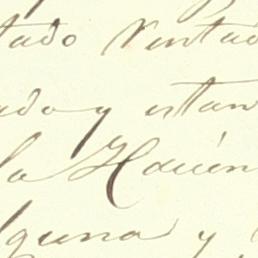 tado Ventad
ado y estan
la Hacien
lguna y